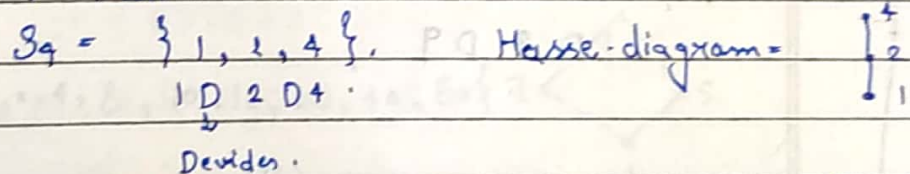 S4 = { 1, 2, 4 }. Hasse-diagram =
4
2
1
1 D 2 D 4 .
Devides .